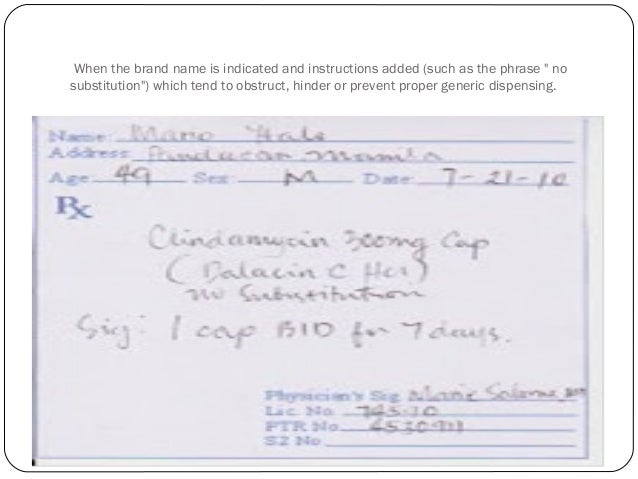 When the brand name is indicated and instructions added (such as the phrase " no
substitution") which tend to obstruct, hinder or prevent proper generic dispensing.
Name Mario
Address Pandacan Manila
Age 49 Sex M Date 7-21-10
Rx
Clindamycin 300mg Cap
(Dalacin C Hcl)
no Substitution
Sig: 1 cap BID for 7 days.
Physician's Sig Marie
Lic. No.
PTR No.
S2 No.